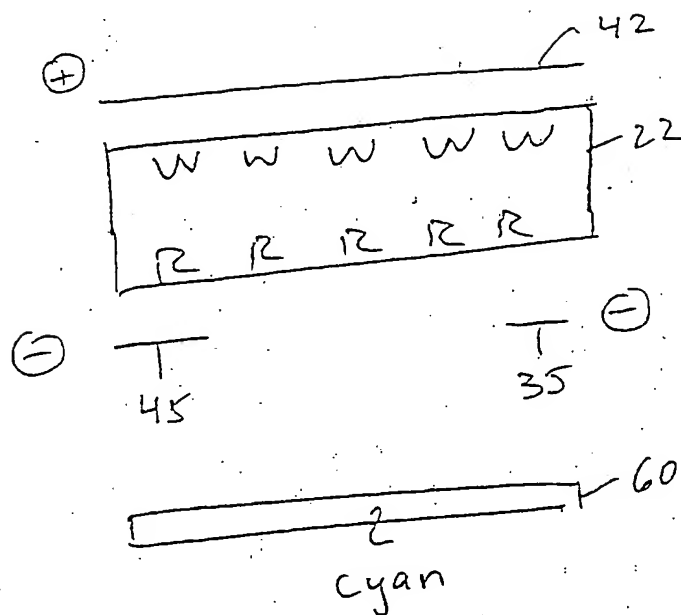 42
+
22
W W W W W
R R R R R
− −
45 35
60
cyan